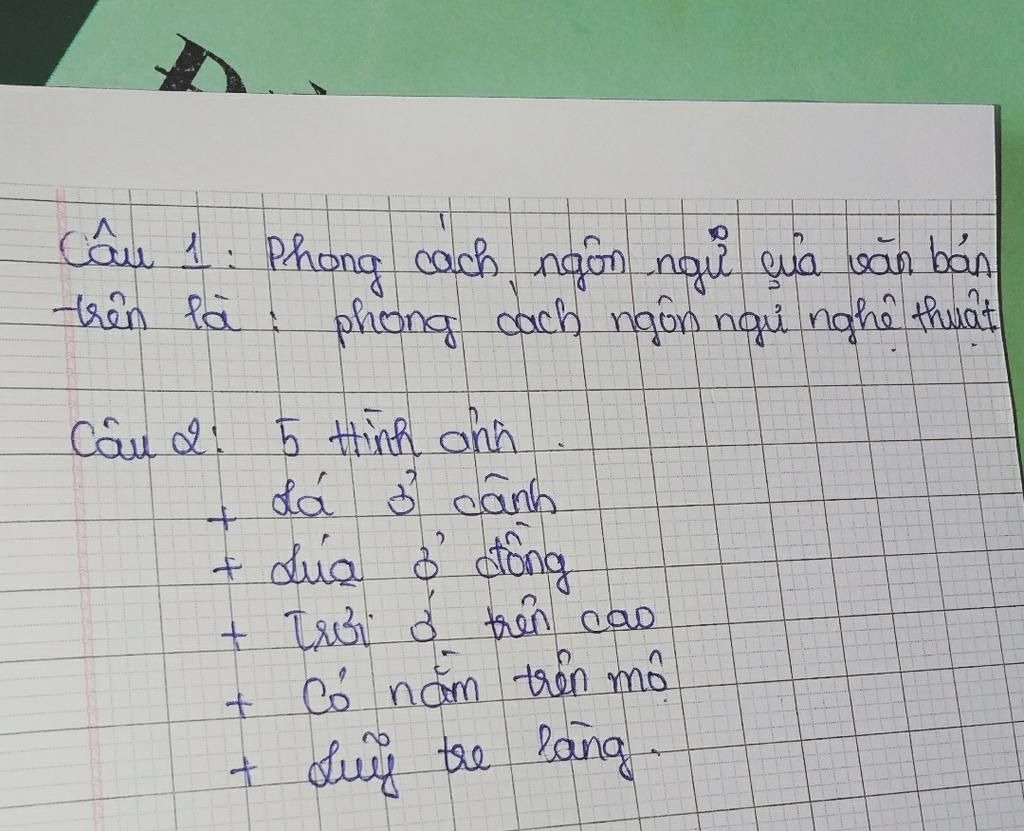 Câu 1: Phong cách ngôn ngữ của văn bản
trên là: phong cách ngôn ngữ nghệ thuật
Câu 2: 5 Hình ảnh.
+ lá ở cành
+ lúa ở đồng
+ Trời ở trên cao
+ Cỏ nằm trên mộ
+ luỹ tre làng.